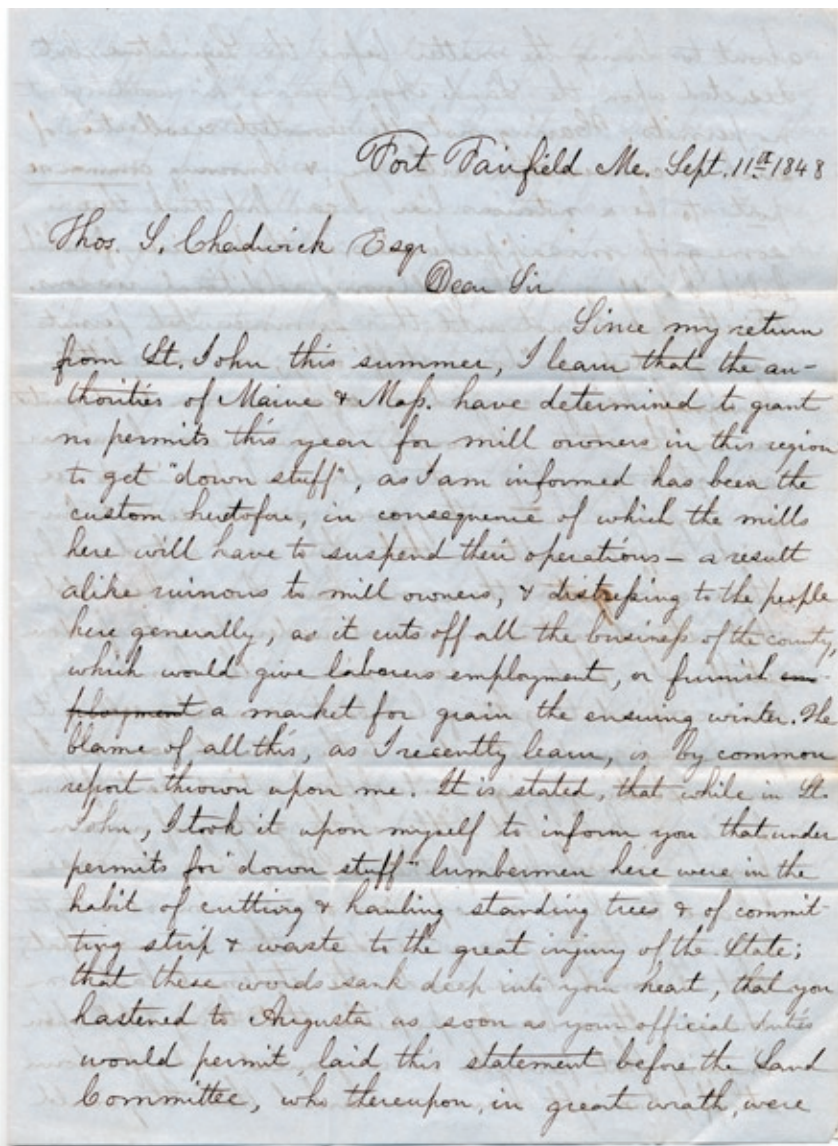 Fort Fairfield Me. Sept. 11th 1848
Thos. S. Chadwick Esqr
Dear Sir
Since my return
from St. John this summer, I learn that the au-
thorities of Maine & Mass. have determined to grant
no permits this year for mill owners in this region
to get "down stuff", as I am informed has been the
custom heretofore, in consequence of which the mills
here will have to suspend their operations – a result
alike ruinous to mill owners, & distressing to the people
here generally, as it cuts off all the business of the county,
which would give laborers employment, or furnish em-
ployment a market for grain the ensuing winter. The
blame of all this, as I recently learn, is by common
report thrown upon me. It is stated, that while in St.
John, I took it upon myself to inform you that under
permits for "down stuff" lumbermen here were in the
habit of cutting & hauling standing trees & of commit-
ting strip & waste to the great injury of the State;
that these words sank deep into your heart, that you
hastened to Augusta as soon as your official duties
would permit, laid this statement before the Land
Committee, who thereupon, in great wrath, were